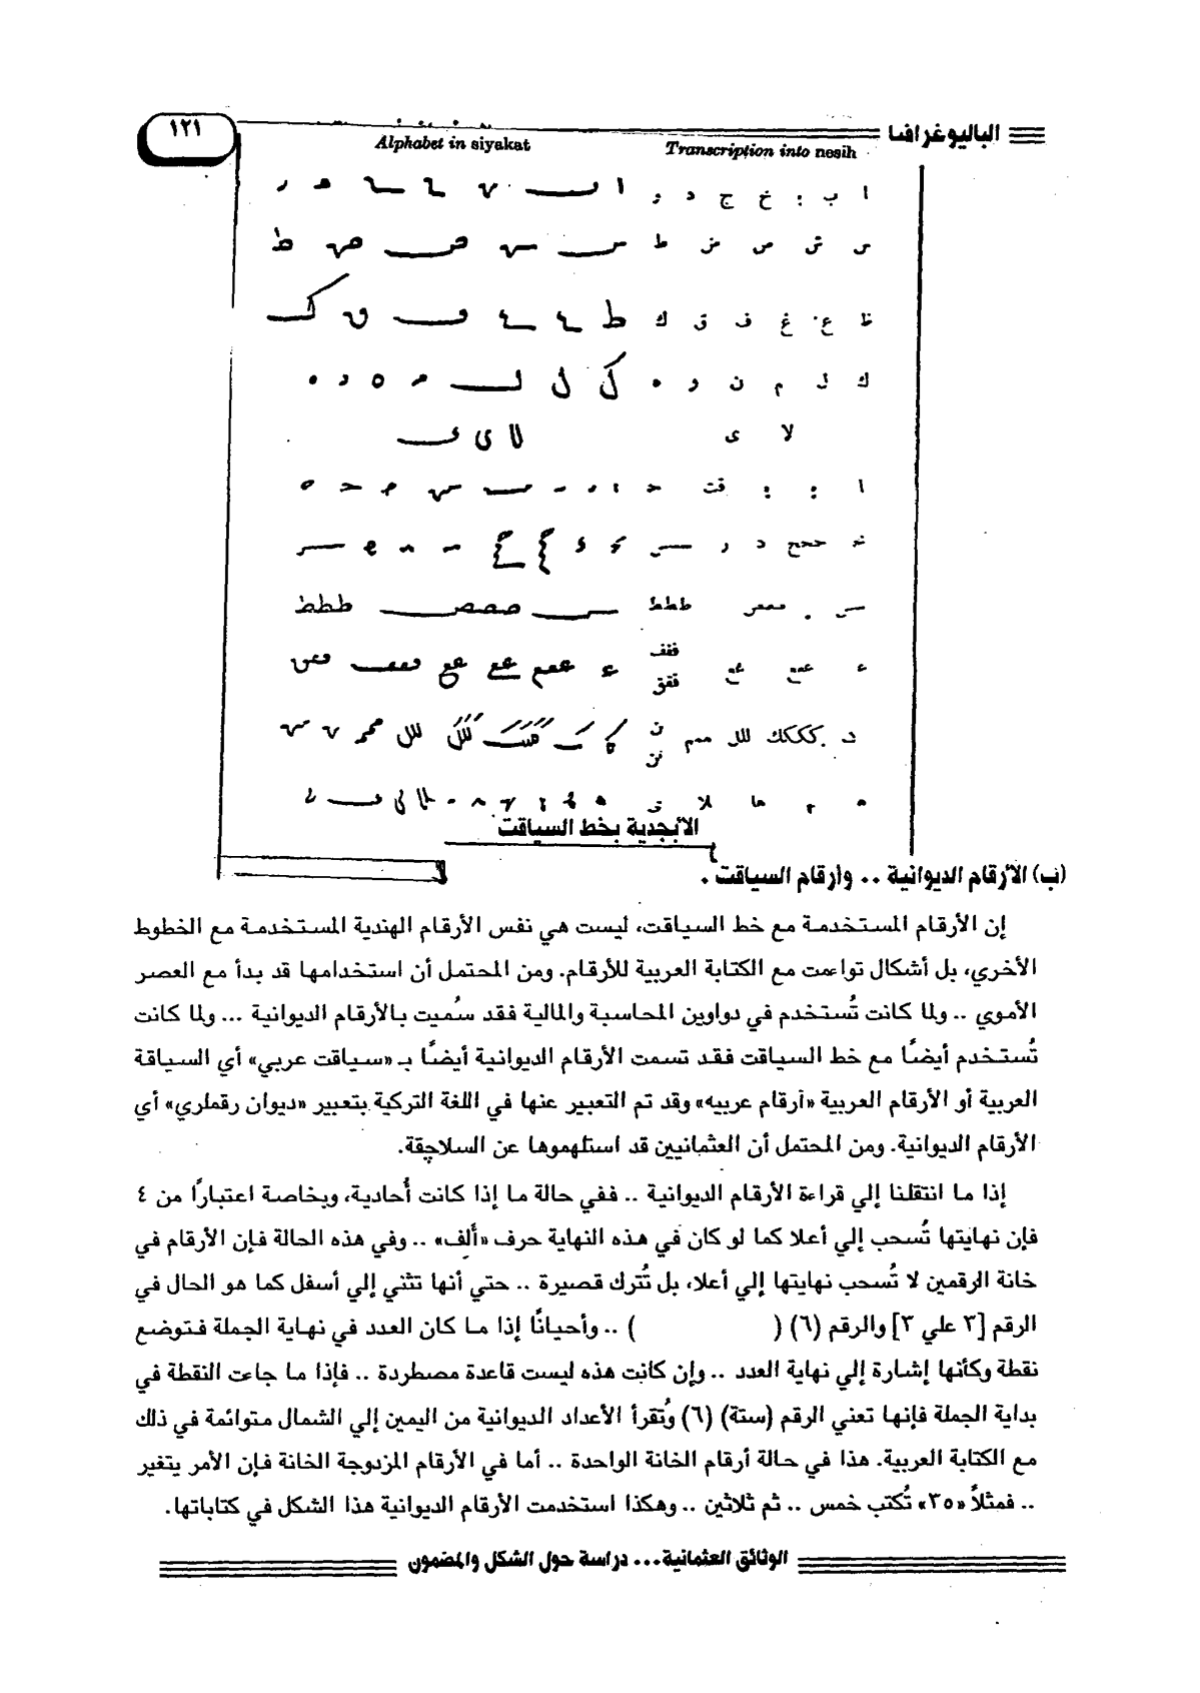 الباليوغرافيا
١٢١
Alphabet in siyakat
Transcription into nesih
ا ب : خ ج د و
س ش ص ض ط
ظ ع غ ف ق ك
ك ل م ن و ه
لا ى
الأبجدية بخط السياقت
(ب) الأرقام الديوانية .. وأرقام السياقت .
إن الأرقام المستخدمة مع خط السياقت، ليست هي نفس الأرقام الهندية المستخدمة مع الخطوط
الأخري، بل أشكال تواءمت مع الكتابة العربية للأرقام. ومن المحتمل أن استخدامها قد بدأ مع العصر
الأموي .. ولما كانت تُستخدم في دواوين المحاسبة والمالية فقد سُميت بالأرقام الديوانية ... ولما كانت
تُستخدم أيضًا مع خط السياقت فقد تسمت الأرقام الديوانية أيضًا بـ «سياقت عربي» أي السياقة
العربية أو الأرقام العربية «أرقام عربيه» وقد تم التعبير عنها في اللغة التركية بتعبير «ديوان رقملري» أي
الأرقام الديوانية. ومن المحتمل أن العثمانيين قد استلهموها عن السلاچقة.
إذا ما انتقلنا إلي قراءة الأرقام الديوانية .. ففي حالة ما إذا كانت أُحادية، وبخاصة اعتبارًا من ٤
فإن نهايتها تُسحب إلي أعلا كما لو كان في هذه النهاية حرف «ألف» .. وفي هذه الحالة فإن الأرقام في
خانة الرقمين لا تُسحب نهايتها إلي أعلا، بل تُترك قصيرة .. حتي أنها تثني إلي أسفل كما هو الحال في
الرقم [٣ علي ٣] والرقم (٦) ( ) .. وأحيانًا إذا ما كان العدد في نهاية الجملة فتوضع
نقطة وكأنها إشارة إلي نهاية العدد .. وإن كانت هذه ليست قاعدة مصطردة .. فإذا ما جاءت النقطة في
بداية الجملة فإنها تعني الرقم (ستة) (٦) وتُقرأ الأعداد الديوانية من اليمين إلي الشمال متوائمة في ذلك
مع الكتابة العربية. هذا في حالة أرقام الخانة الواحدة .. أما في الأرقام المزدوجة الخانة فإن الأمر يتغير
.. فمثلاً «٣٥» تُكتب خمس .. ثم ثلاثين .. وهكذا استخدمت الأرقام الديوانية هذا الشكل في كتاباتها.
الوثائق العثمانية... دراسة حول الشكل والمضمون